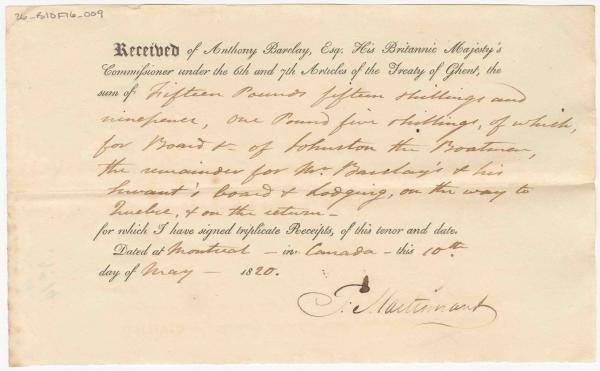 26-B1DF16-009
Received of Anthony Barclay, Esq. His Britannic Majesty's
Commissioner under the 6th and 7th Articles of the Treaty of Ghent, the
sum of Fifteen Pounds fifteen shillings and
ninepence, one Pound five shillings, of which,
for Board &c of Johnston the Boatman,
the remainder for Mr. Barclay's & his
Servant's board & lodging, on the way to
Quebec, & on the return —
for which I have signed triplicate Receipts, of this tenor and date.
Dated at Montreal — in Canada — this 10th
day of May — 1820.